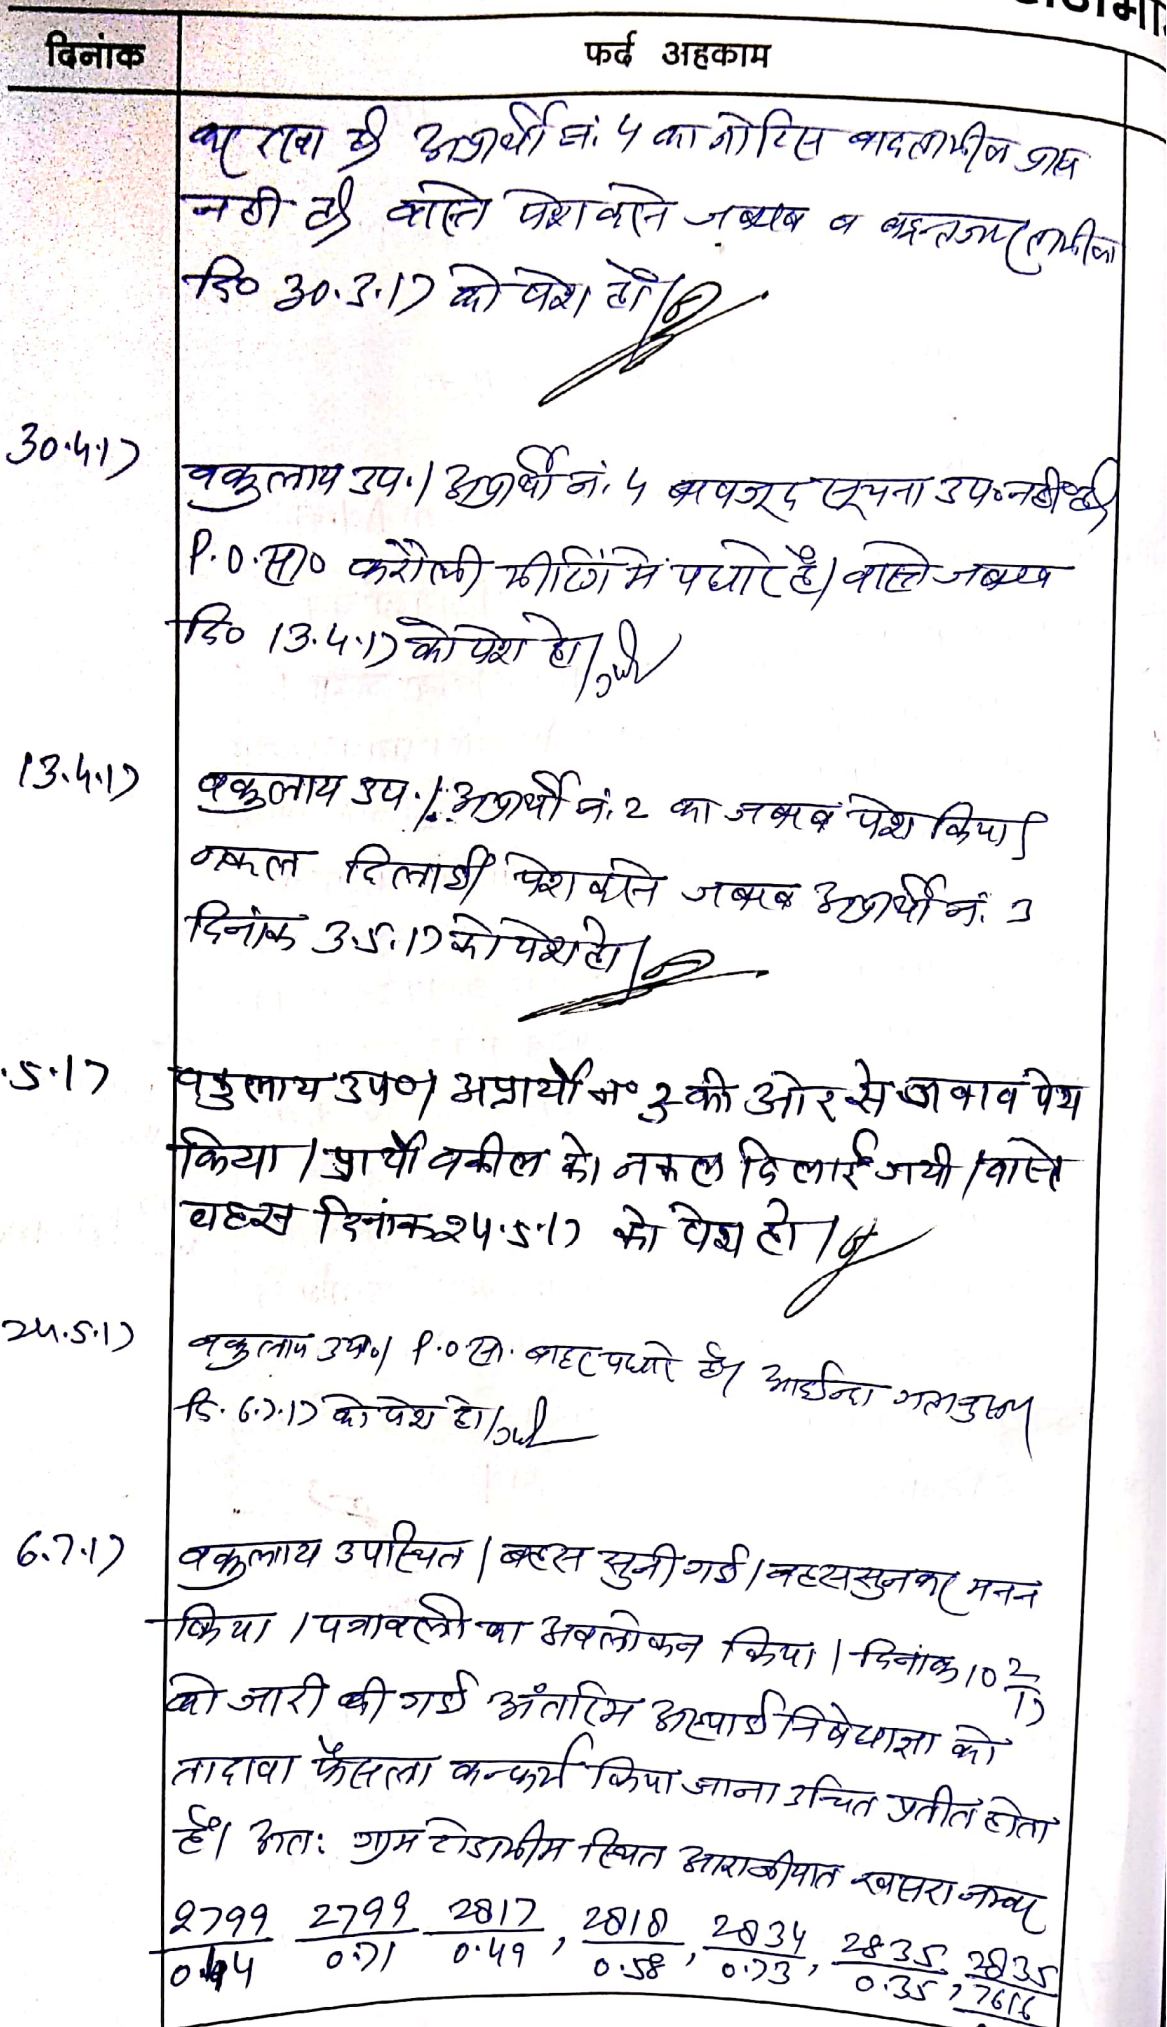 दिनांक
फर्द अहकाम
अप्रार्थी नं. 4 का नोटिस बादतामील प्राप्त
नही है। वास्ते पेश करने जबाब व
दि० 30.3.17 को पेश हो।
30.4.17
वकुलाय उप.। अप्रार्थी नं. 4 बावजूद सूचना उप० नही है।
P.O. सा० करौली मीटिंग में पधारे है। वास्ते जबाब
दि० 13.4.17 को पेश हो।
13.4.17
वकुलाय उप.। अप्रार्थी नं. 2 का जबाब पेश किया।
नकल दिलाई। पेश करने जबाब अप्रार्थी नं. 3
दिनांक 3.5.17 को पेश हो।
.5.17
वकुलाय उप०। अप्रार्थी न० 3 की ओर से जवाव पेश
किया। प्रार्थी वकील को नकल दिलाई गयी। वास्ते
बहस दिनांक 24.5.17 को पेश हो।
24.5.17
वकुलाय उप०। P.O सा. बाहर पधारे है। आईन्दा
दि. 6.7.17 को पेश हो।
6.7.17
वकुलाय उपस्थित। बहस सुनी गई। बहस सुनकर मनन
किया। पत्रावली का अवलोकन किया। दिनांक 10 2/17
को जारी की गई अंतरिम अस्थाई निषेधाज्ञा को
तादावा फैसला कन्फर्म किया जाना उचित प्रतीत होता
है। अतः ग्राम टोडाभीम स्थित आराजीयात खसरा नम्बर
2799/0.44 2799/0.71 2817/0.49, 2818/0.58, 2834/0.73, 2835/0.35, 2835/7616